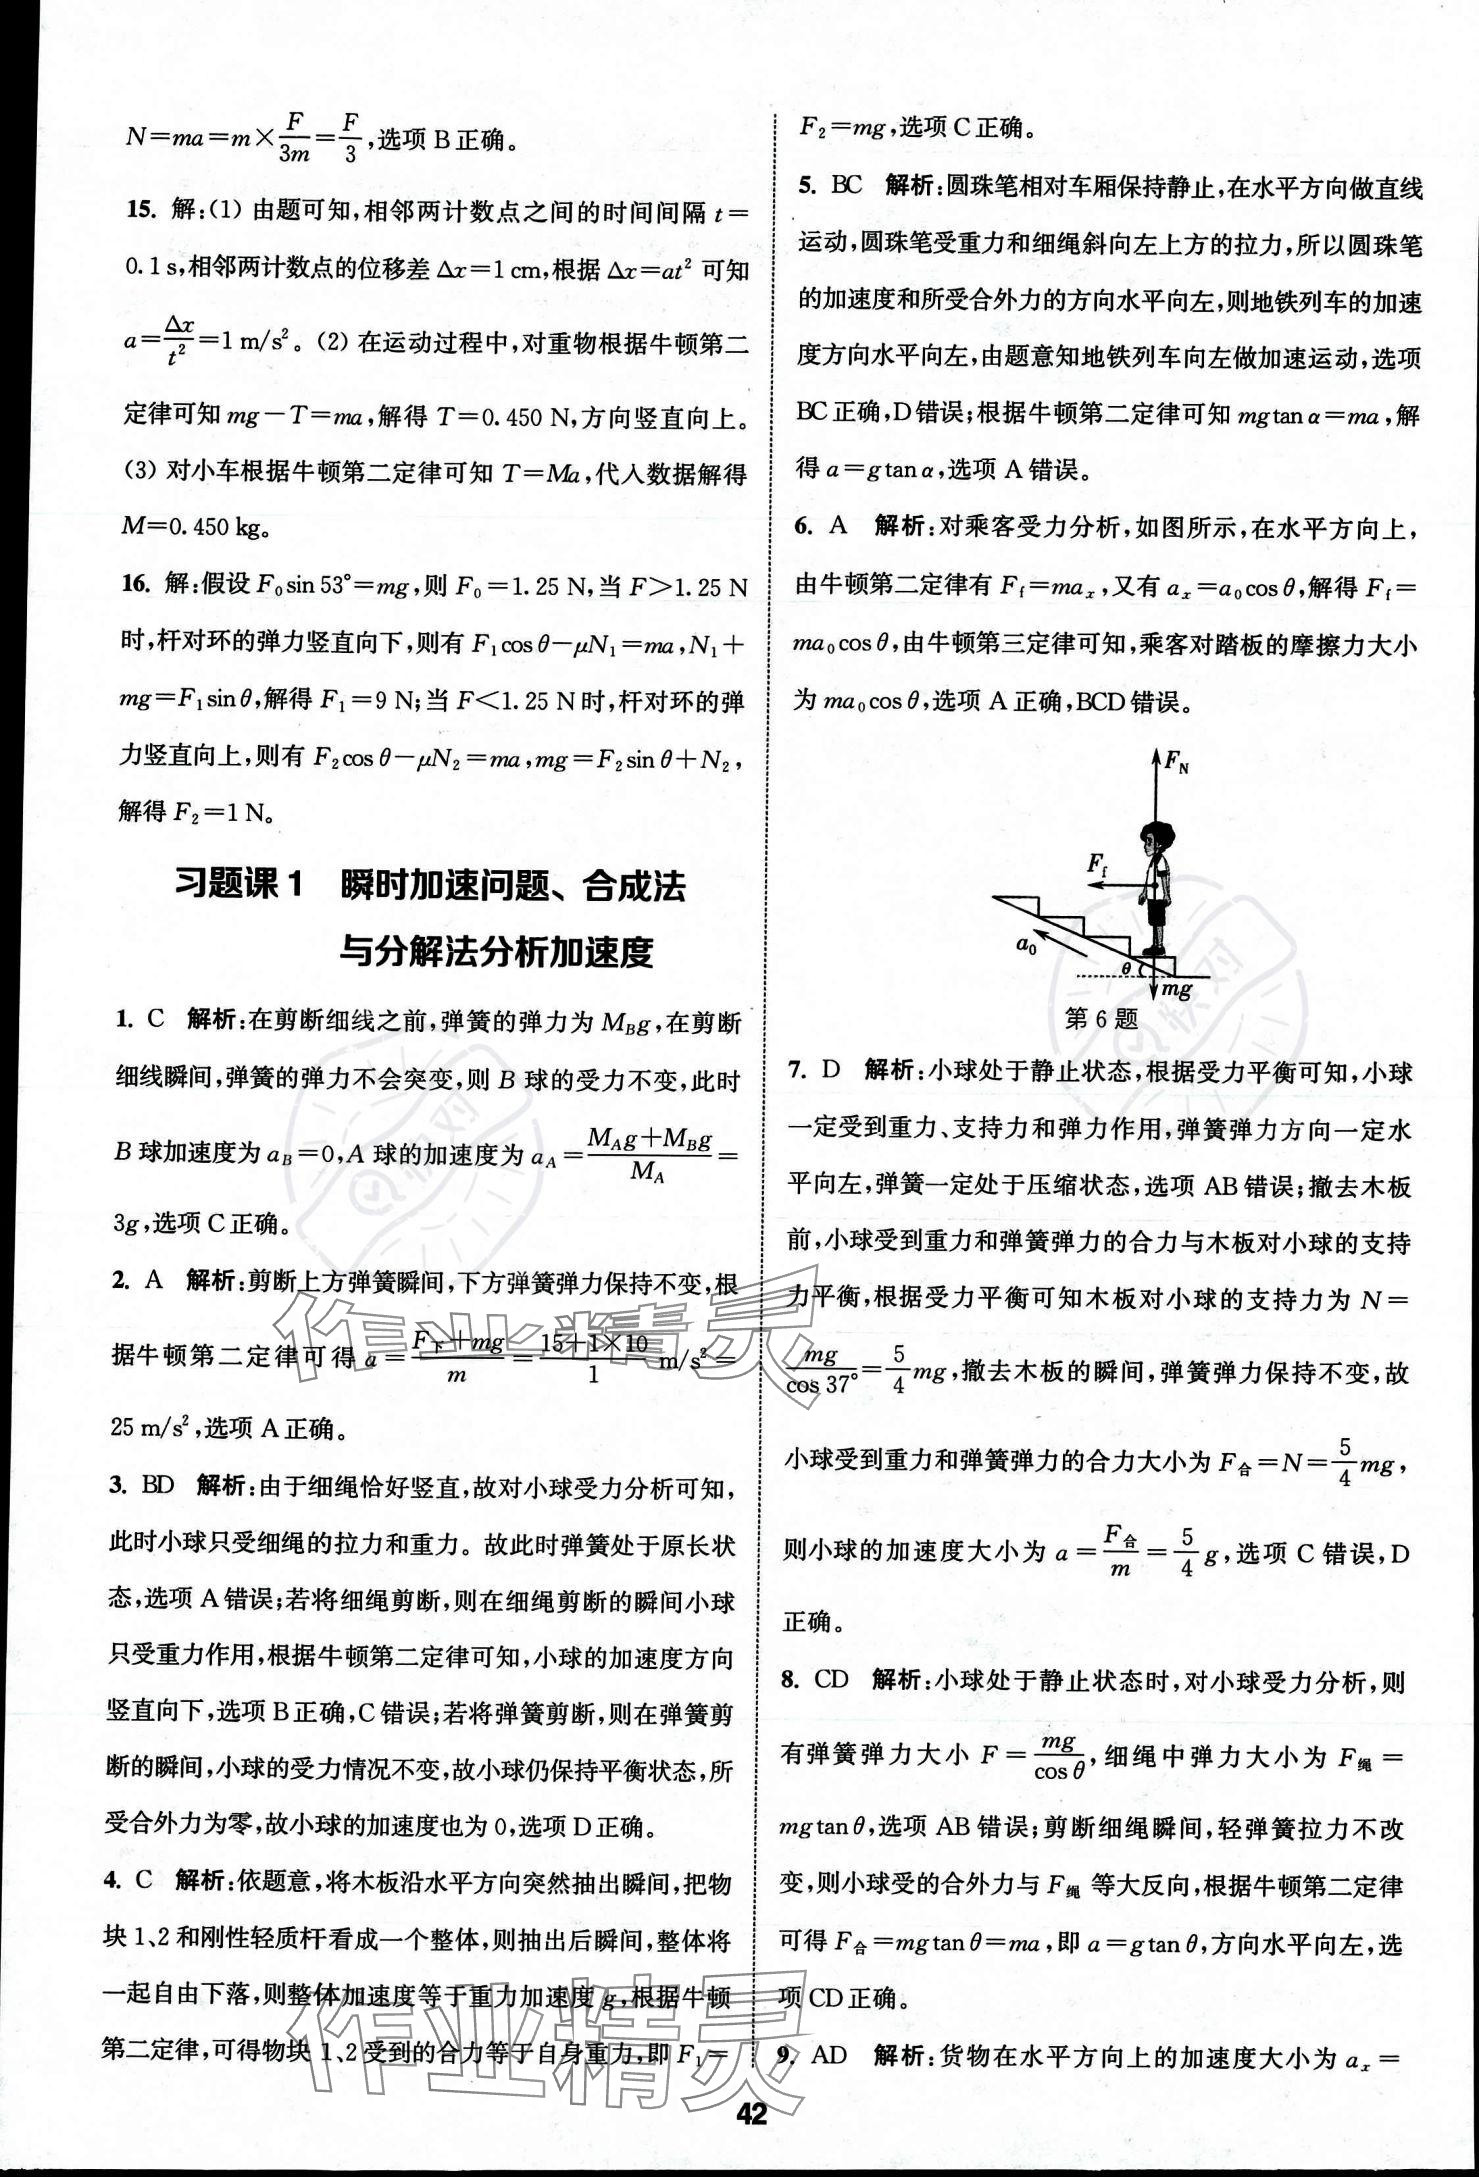 N=ma=m×F/3m=F/3,选项B正确。
15. 解:(1) 由题可知,相邻两计数点之间的时间间隔 t=
0.1 s,相邻两计数点的位移差 Δx=1 cm,根据 Δx=at² 可知
a=Δx/t²=1 m/s²。(2) 在运动过程中,对重物根据牛顿第二
定律可知 mg-T=ma,解得 T=0.450 N,方向竖直向上。
(3) 对小车根据牛顿第二定律可知 T=Ma,代入数据解得
M=0.450 kg。
16. 解:假设 F₀sin 53°=mg,则 F₀=1.25 N,当 F>1.25 N
时,杆对环的弹力竖直向下,则有 F₁cos θ-μN₁=ma,N₁+
mg=F₁sin θ,解得 F₁=9 N;当 F<1.25 N时,杆对环的弹
力竖直向上,则有 F₂cos θ-μN₂=ma,mg=F₂sin θ+N₂,
解得 F₂=1 N。
习题课1 瞬时加速问题、合成法
与分解法分析加速度
1. C 解析:在剪断细线之前,弹簧的弹力为 M_Bg,在剪断
细线瞬间,弹簧的弹力不会突变,则 B 球的受力不变,此时
B 球加速度为 a_B=0,A 球的加速度为 a_A=(M_Ag+M_Bg)/M_A=
3g,选项C正确。
2. A 解析:剪断上方弹簧瞬间,下方弹簧弹力保持不变,根
据牛顿第二定律可得 a=(F下+mg)/m=(15+1×10)/1 m/s²=
25 m/s²,选项A正确。
3. BD 解析:由于细绳恰好竖直,故对小球受力分析可知,
此时小球只受细绳的拉力和重力。故此时弹簧处于原长状
态,选项A错误;若将细绳剪断,则在细绳剪断的瞬间小球
只受重力作用,根据牛顿第二定律可知,小球的加速度方向
竖直向下,选项B正确,C错误;若将弹簧剪断,则在弹簧剪
断的瞬间,小球的受力情况不变,故小球仍保持平衡状态,所
受合外力为零,故小球的加速度也为0,选项D正确。
4. C 解析:依题意,将木板沿水平方向突然抽出瞬间,把物
块1、2和刚性轻质杆看成一个整体,则抽出后瞬间,整体将
一起自由下落,则整体加速度等于重力加速度 g,根据牛顿
第二定律,可得物块1、2受到的合力等于自身重力,即 F₁=
F₂=mg,选项C正确。
5. BC 解析:圆珠笔相对车厢保持静止,在水平方向做直线
运动,圆珠笔受重力和细绳斜向左上方的拉力,所以圆珠笔
的加速度和所受合外力的方向水平向左,则地铁列车的加速
度方向水平向左,由题意知地铁列车向左做加速运动,选项
BC正确,D错误;根据牛顿第二定律可知 mgtan α=ma,解
得 a=gtan α,选项A错误。
6. A 解析:对乘客受力分析,如图所示,在水平方向上,
由牛顿第二定律有 F_f=ma_x,又有 a_x=a₀cos θ,解得 F_f=
ma₀cos θ,由牛顿第三定律可知,乘客对踏板的摩擦力大小
为 ma₀cos θ,选项A正确,BCD错误。
F_N
F_f
a₀
θ
mg
第6题
7. D 解析:小球处于静止状态,根据受力平衡可知,小球
一定受到重力、支持力和弹力作用,弹簧弹力方向一定水
平向左,弹簧一定处于压缩状态,选项AB错误;撤去木板
前,小球受到重力和弹簧弹力的合力与木板对小球的支持
力平衡,根据受力平衡可知木板对小球的支持力为 N=
mg/cos 37°=5/4 mg,撤去木板的瞬间,弹簧弹力保持不变,故
小球受到重力和弹簧弹力的合力大小为 F合=N=5/4 mg,
则小球的加速度大小为 a=F合/m=5/4 g,选项C错误,D
正确。
8. CD 解析:小球处于静止状态时,对小球受力分析,则
有弹簧弹力大小 F=mg/cos θ,细绳中弹力大小为 F绳=
mgtan θ,选项AB错误;剪断细绳瞬间,轻弹簧拉力不改
变,则小球受的合外力与 F绳 等大反向,根据牛顿第二定律
可得 F合=mgtan θ=ma,即 a=gtan θ,方向水平向左,选
项CD正确。
9. AD 解析:货物在水平方向上的加速度大小为 a_x=
42
作业精灵
作业精灵
快对
快对